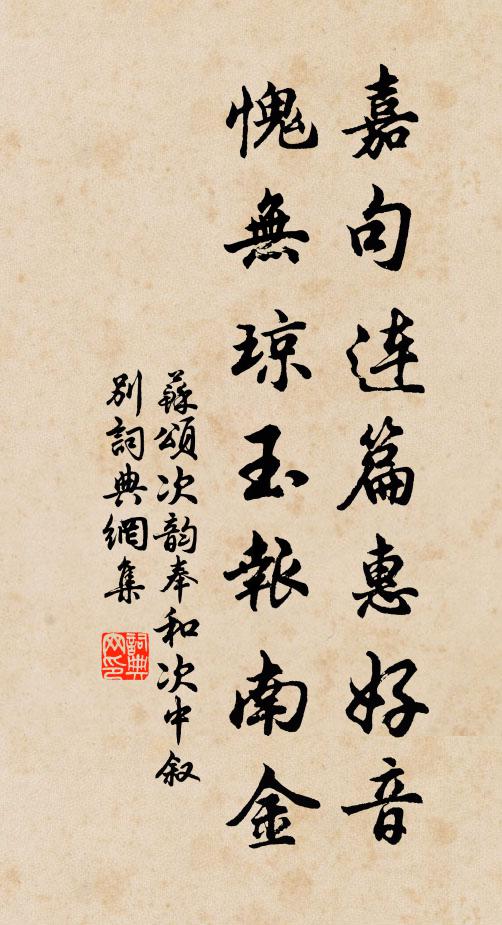 嘉句连篇惠好音
愧無琼玉報南金
蘇頌次韵奉和次中叙
别詞典網集
詞典网印